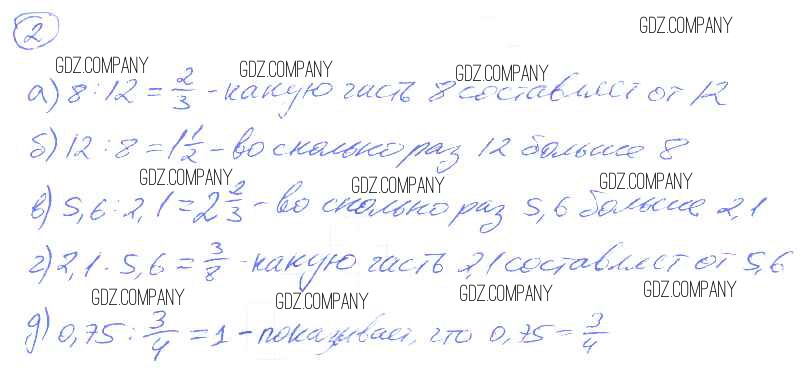 2
GDZ.COMPANY
GDZ.COMPANY GDZ.COMPANY GDZ.COMPANY
а) 8 : 12 = 2/3 - какую часть 8 составляет от 12
б) 12 : 8 = 1 1/2 - во сколько раз 12 больше 8
GDZ.COMPANY GDZ.COMPANY GDZ.COMPANY
в) 5,6 : 2,1 = 2 2/3 - во сколько раз 5,6 больше 2,1
г) 2,1 : 5,6 = 3/8 - какую часть 2,1 составляет от 5,6
GDZ.COMPANY GDZ.COMPANY GDZ.COMPANY GDZ.COMPANY
д) 0,75 : 3/4 = 1 - показывает, что 0,75 = 3/4